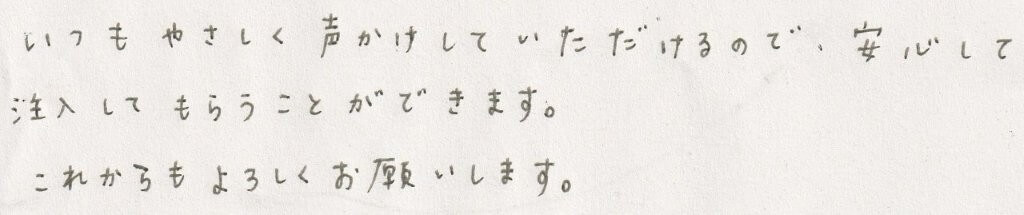 いつもやさしく声かけしていただけるので、安心して
注入してもらうことができます。
これからもよろしくお願いします。